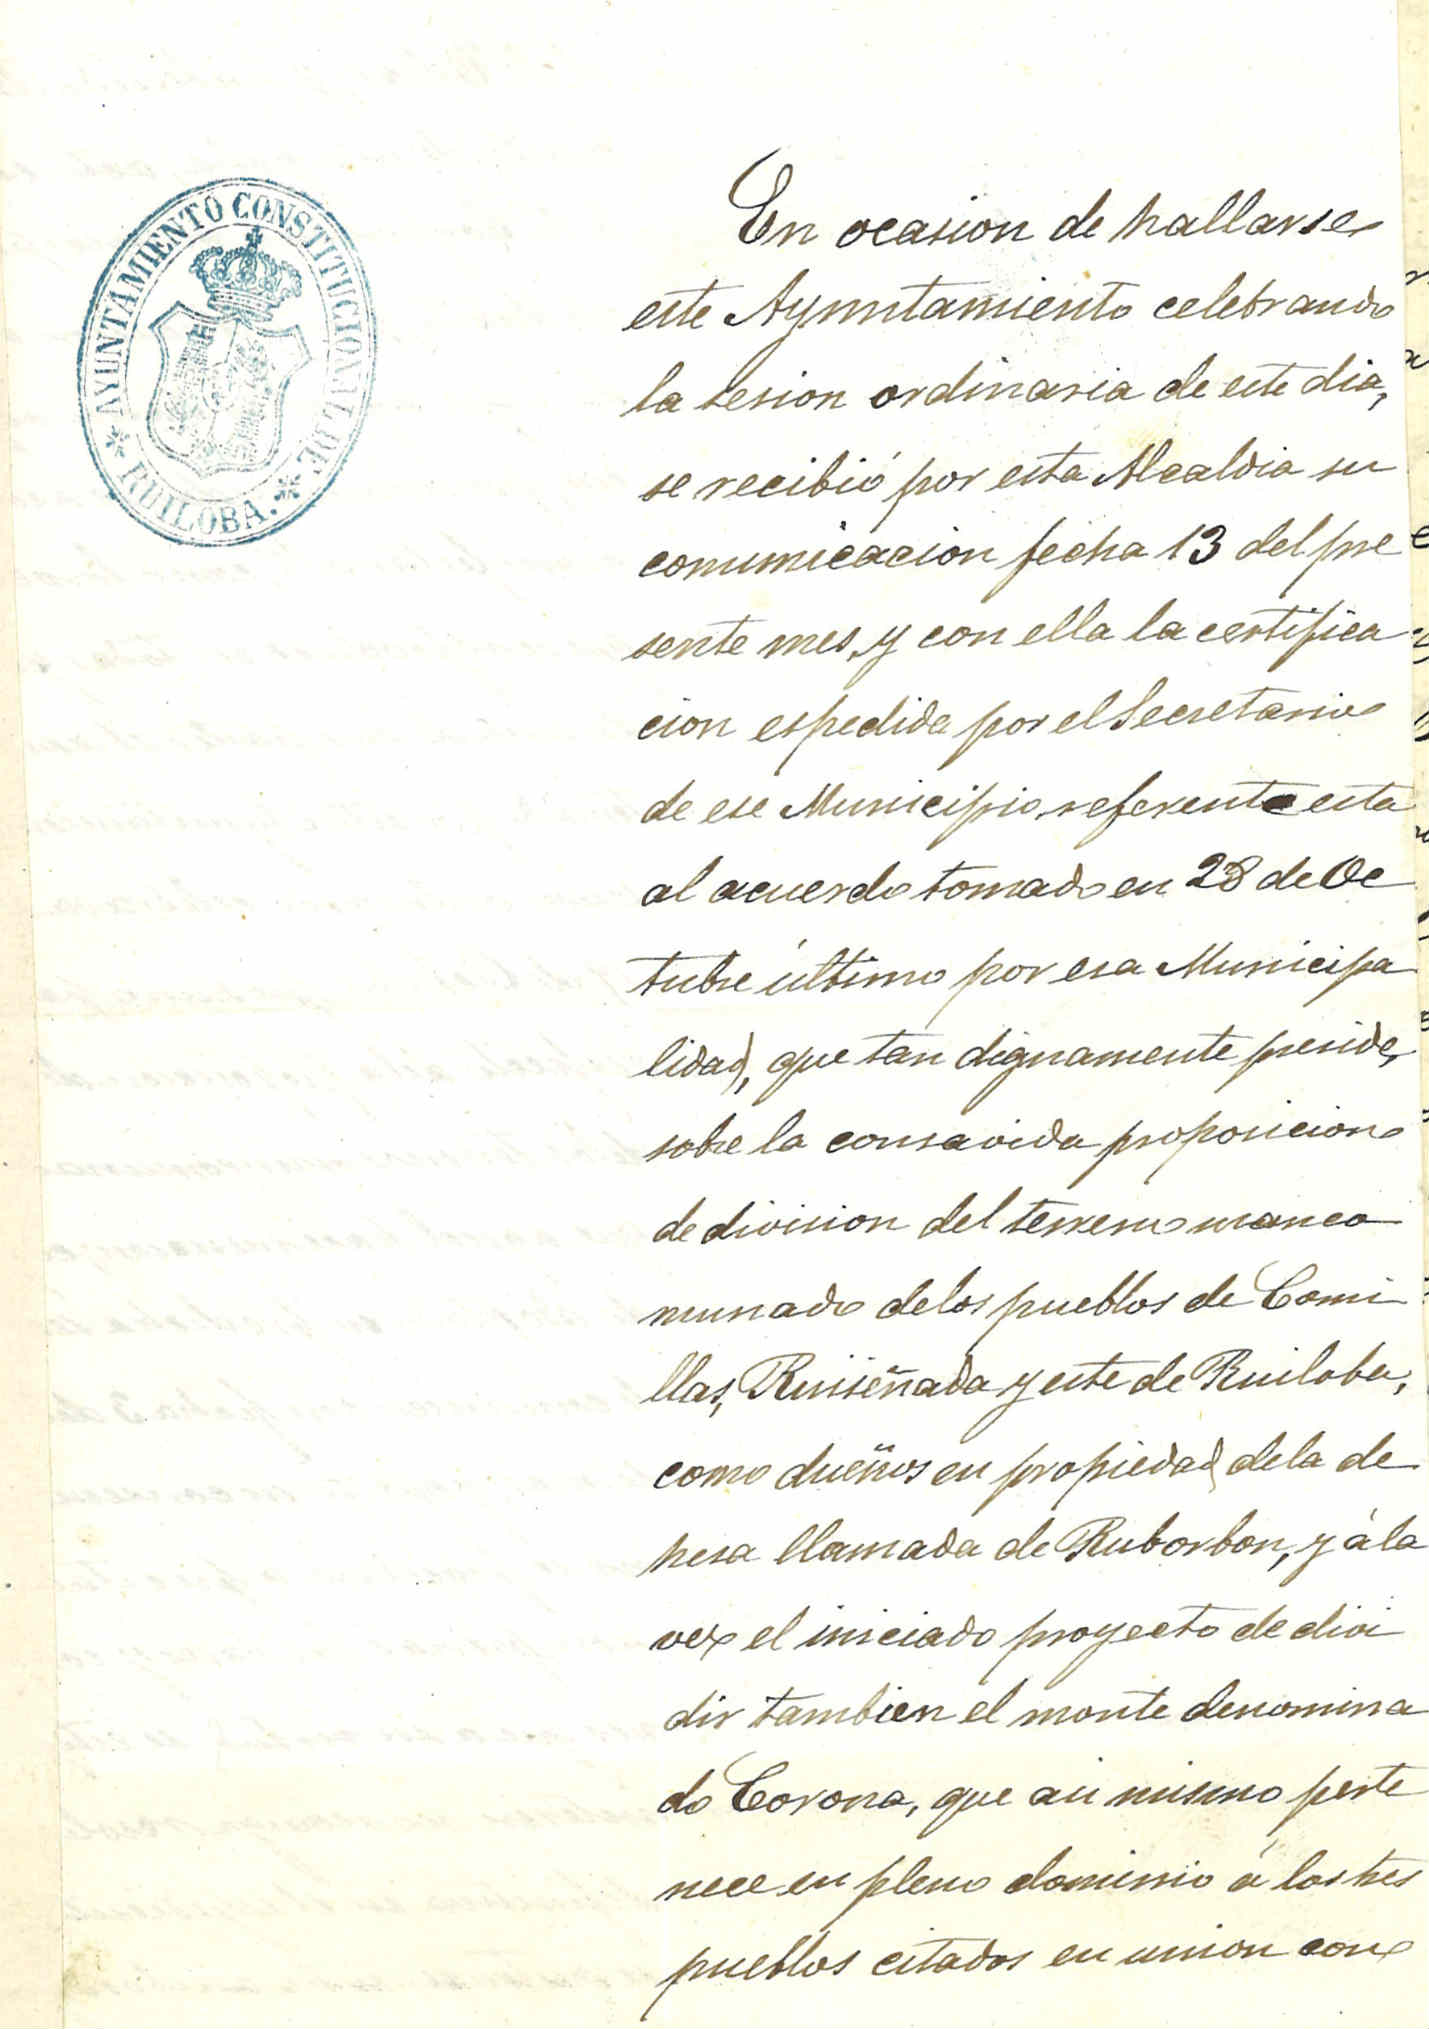 AYUNTAMIENTO CONSTITUCIONAL DE
* RUILOBA. *
En ocasion de hallarse
este Ayuntamiento celebrando
la sesion ordinaria de este dia,
se recibió por esta Alcaldia su
comunicacion fecha 13 del pre
sente mes, y con ella la certifica
cion espedida por el Secretario
de ese Municipio, referente esta
al acuerdo tomado en 28 de Oc
tubre último por esa Municipa
lidad, que tan dignamente preside,
sobre la consavida proposicion
de division del terreno manco
munado de los pueblos de Comi
llas, Ruiseñada y este de Ruiloba,
como dueños en propiedad de la de
hesa llamada de Ruborbon, y á la
vez el iniciado proyecto de divi
dir tambien el monte denomina
do Corona, que asi mismo perte
nece en pleno dominio á los tres
pueblos citados en union con